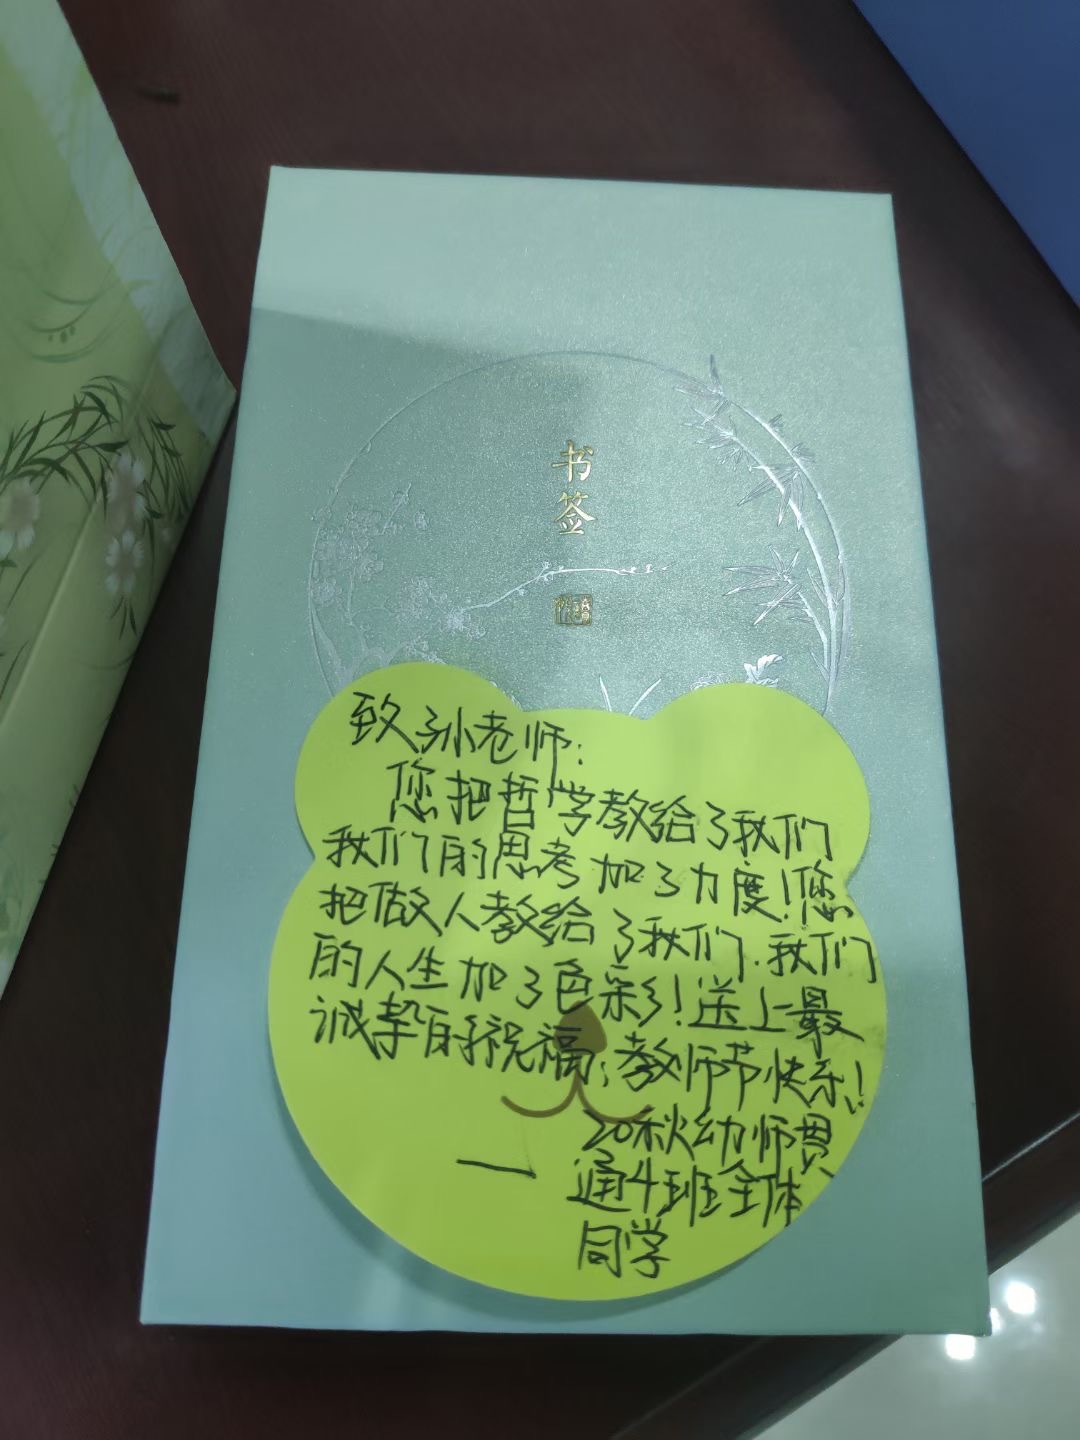 书
签
致孙老师:
您把哲学教给了我们
我们的思考加了力度!您
把做人教给了我们.我们
的人生加了色彩!送上最
诚挚的祝福:教师节快乐!
20秋幼师贯
一 通4班全体
同学